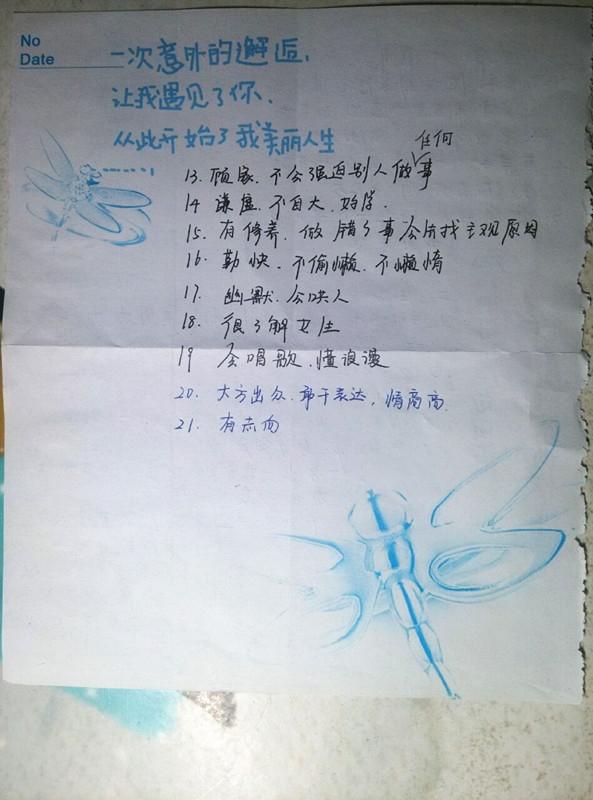 No
Date
一次意外的邂逅,
让我遇见了你、
从此开始了我美丽人生
任何
13. 顾家、不会强迫别人做事
14 谦虚、不自大、好学.
15. 有修养、做错了事会先找主观原因
16. 勤快、不偷懒、不懒惰
17. 幽默、会哄人
18. 很了解女生
19 会唱歌、懂浪漫
20. 大方出众、敢于表达, 情商高.
21. 有志向